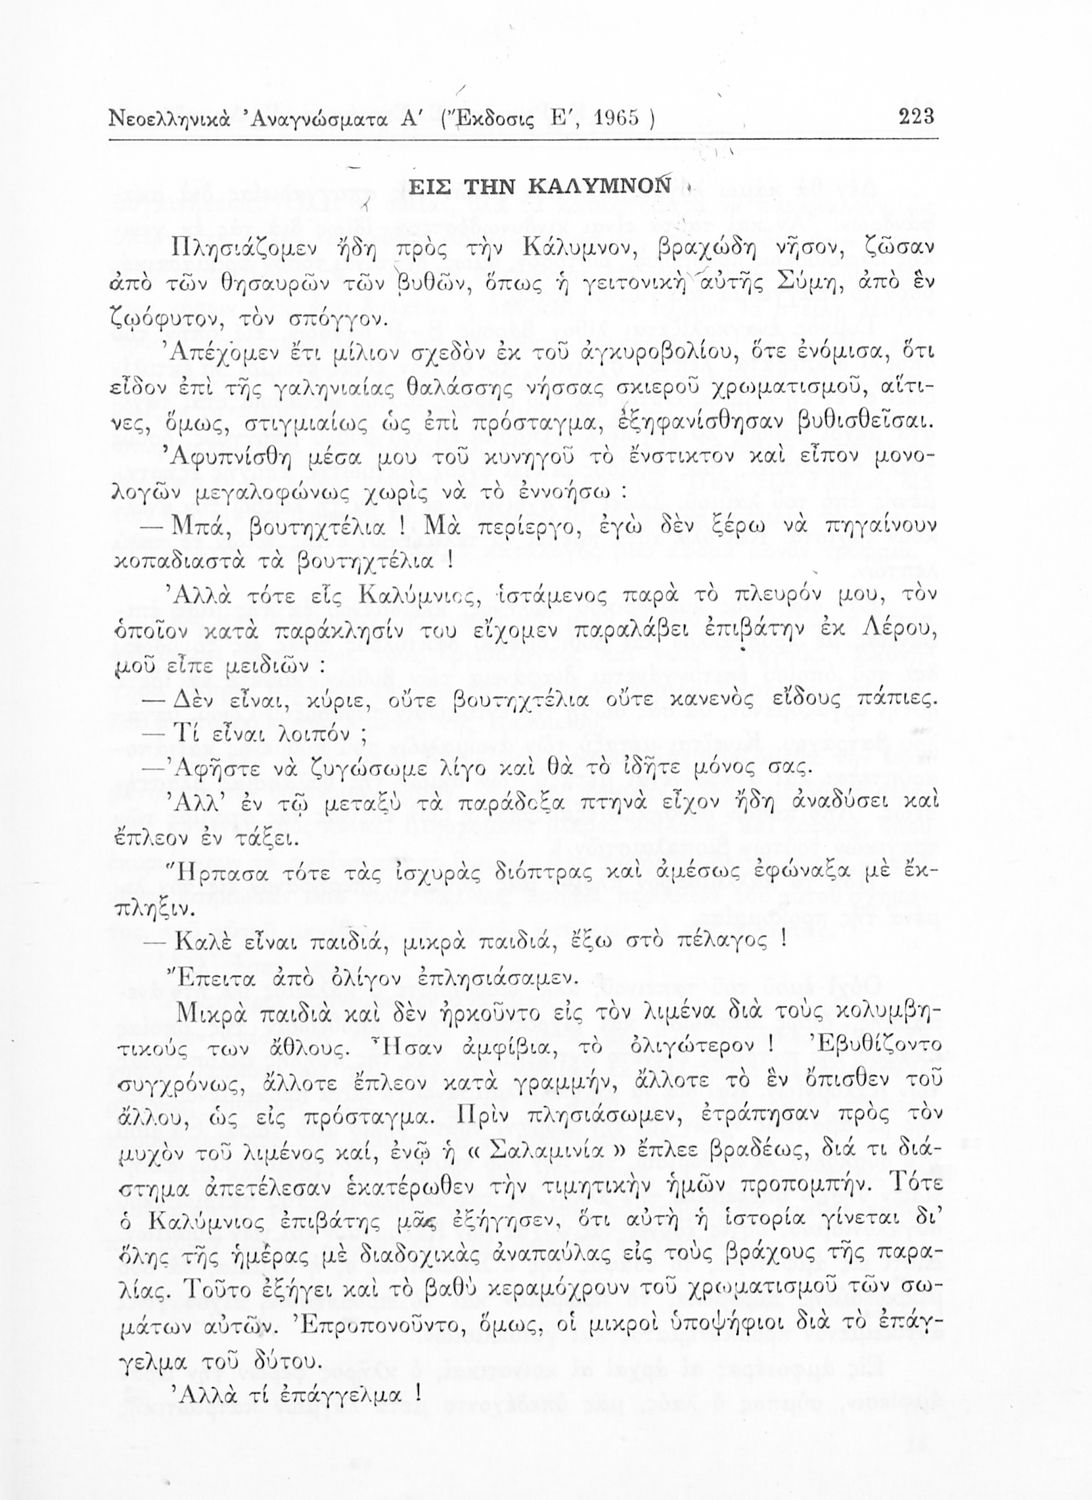 Νεοελληνικὰ Ἀναγνώσματα Α′ (Ἔκδοσις Ε′, 1965 ) 223
ΕΙΣ ΤΗΝ ΚΑΛΥΜΝΟΝ
Πλησιάζομεν ἤδη πρὸς τὴν Κάλυμνον, βραχώδη νῆσον, ζῶσαν
ἀπὸ τῶν θησαυρῶν τῶν βυθῶν, ὅπως ἡ γειτονικὴ αὐτῆς Σύμη, ἀπὸ ἓν
ζῳόφυτον, τὸν σπόγγον.
Ἀπέχομεν ἔτι μίλιον σχεδὸν ἐκ τοῦ ἀγκυροβολίου, ὅτε ἐνόμισα, ὅτι
εἶδον ἐπὶ τῆς γαληνιαίας θαλάσσης νήσσας σκιεροῦ χρωματισμοῦ, αἵτι-
νες, ὅμως, στιγμιαίως ὡς ἐπὶ πρόσταγμα, ἐξηφανίσθησαν βυθισθεῖσαι.
Ἀφυπνίσθη μέσα μου τοῦ κυνηγοῦ τὸ ἔνστικτον καὶ εἶπον μονο-
λογῶν μεγαλοφώνως χωρὶς νὰ τὸ ἐννοήσω :
— Μπά, βουτηχτέλια ! Μὰ περίεργο, ἐγὼ δὲν ξέρω νὰ πηγαίνουν
κοπαδιαστὰ τὰ βουτηχτέλια !
Ἀλλὰ τότε εἷς Καλύμνιος, ἱστάμενος παρὰ τὸ πλευρόν μου, τὸν
ὁποῖον κατὰ παράκλησίν του εἴχομεν παραλάβει ἐπιβάτην ἐκ Λέρου,
μοῦ εἶπε μειδιῶν :
— Δὲν εἶναι, κύριε, οὔτε βουτηχτέλια οὔτε κανενὸς εἴδους πάπιες.
— Τί εἶναι λοιπόν ;
— Ἀφῆστε νὰ ζυγώσωμε λίγο καὶ θὰ τὸ ἰδῆτε μόνος σας.
Ἀλλ’ ἐν τῷ μεταξὺ τὰ παράδοξα πτηνὰ εἶχον ἤδη ἀναδύσει καὶ
ἔπλεον ἐν τάξει.
Ἥρπασα τότε τὰς ἰσχυρὰς διόπτρας καὶ ἀμέσως ἐφώναξα μὲ ἔκ-
πληξιν.
— Καλὲ εἶναι παιδιά, μικρὰ παιδιά, ἔξω στὸ πέλαγος !
Ἔπειτα ἀπὸ ὀλίγον ἐπλησιάσαμεν.
Μικρὰ παιδιὰ καὶ δὲν ἠρκοῦντο εἰς τὸν λιμένα διὰ τοὺς κολυμβη-
τικούς των ἄθλους. Ἦσαν ἀμφίβια, τὸ ὀλιγώτερον ! Ἐβυθίζοντο
συγχρόνως, ἄλλοτε ἔπλεον κατὰ γραμμήν, ἄλλοτε τὸ ἓν ὄπισθεν τοῦ
ἄλλου, ὡς εἰς πρόσταγμα. Πρὶν πλησιάσωμεν, ἐτράπησαν πρὸς τὸν
μυχὸν τοῦ λιμένος καί, ἐνῷ ἡ « Σαλαμινία » ἔπλεε βραδέως, διά τι διά-
στημα ἀπετέλεσαν ἑκατέρωθεν τὴν τιμητικὴν ἡμῶν προπομπήν. Τότε
ὁ Καλύμνιος ἐπιβάτης μᾶς ἐξήγησεν, ὅτι αὐτὴ ἡ ἱστορία γίνεται δι’
ὅλης τῆς ἡμέρας μὲ διαδοχικὰς ἀναπαύλας εἰς τοὺς βράχους τῆς παρα-
λίας. Τοῦτο ἐξήγει καὶ τὸ βαθὺ κεραμόχρουν τοῦ χρωματισμοῦ τῶν σω-
μάτων αὐτῶν. Ἐπροπονοῦντο, ὅμως, οἱ μικροὶ ὑποψήφιοι διὰ τὸ ἐπάγ-
γελμα τοῦ δύτου.
Ἀλλὰ τί ἐπάγγελμα !